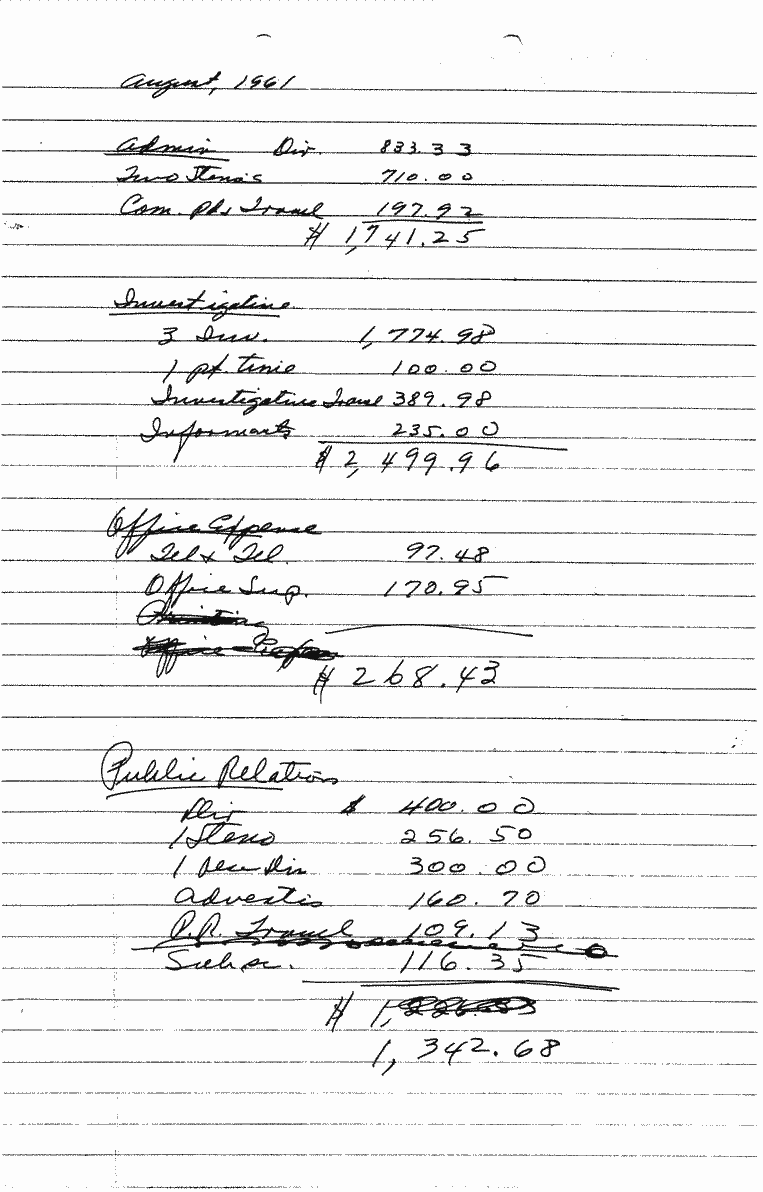 August, 1961
Admin Dir. 833.33
Two Steno's 710.00
Com. pds Travel 197.92
$ 1,741.25
Investigative
3 Inv. 1,774.98
1 pt. time 100.00
Investigative Travel 389.98
Informants 235.00
$ 2,499.96
Office Expense
Tel & Tel. 97.48
Office Sup. 170.95
Printing
Office
$ 268.43
Public Relations
Dir $ 400.00
1 Steno 256.50
1 Din 300.00
Advertis 160.70
P.R. Travel 109.13
Subsc. 116.35
$ 1,
1,342.68